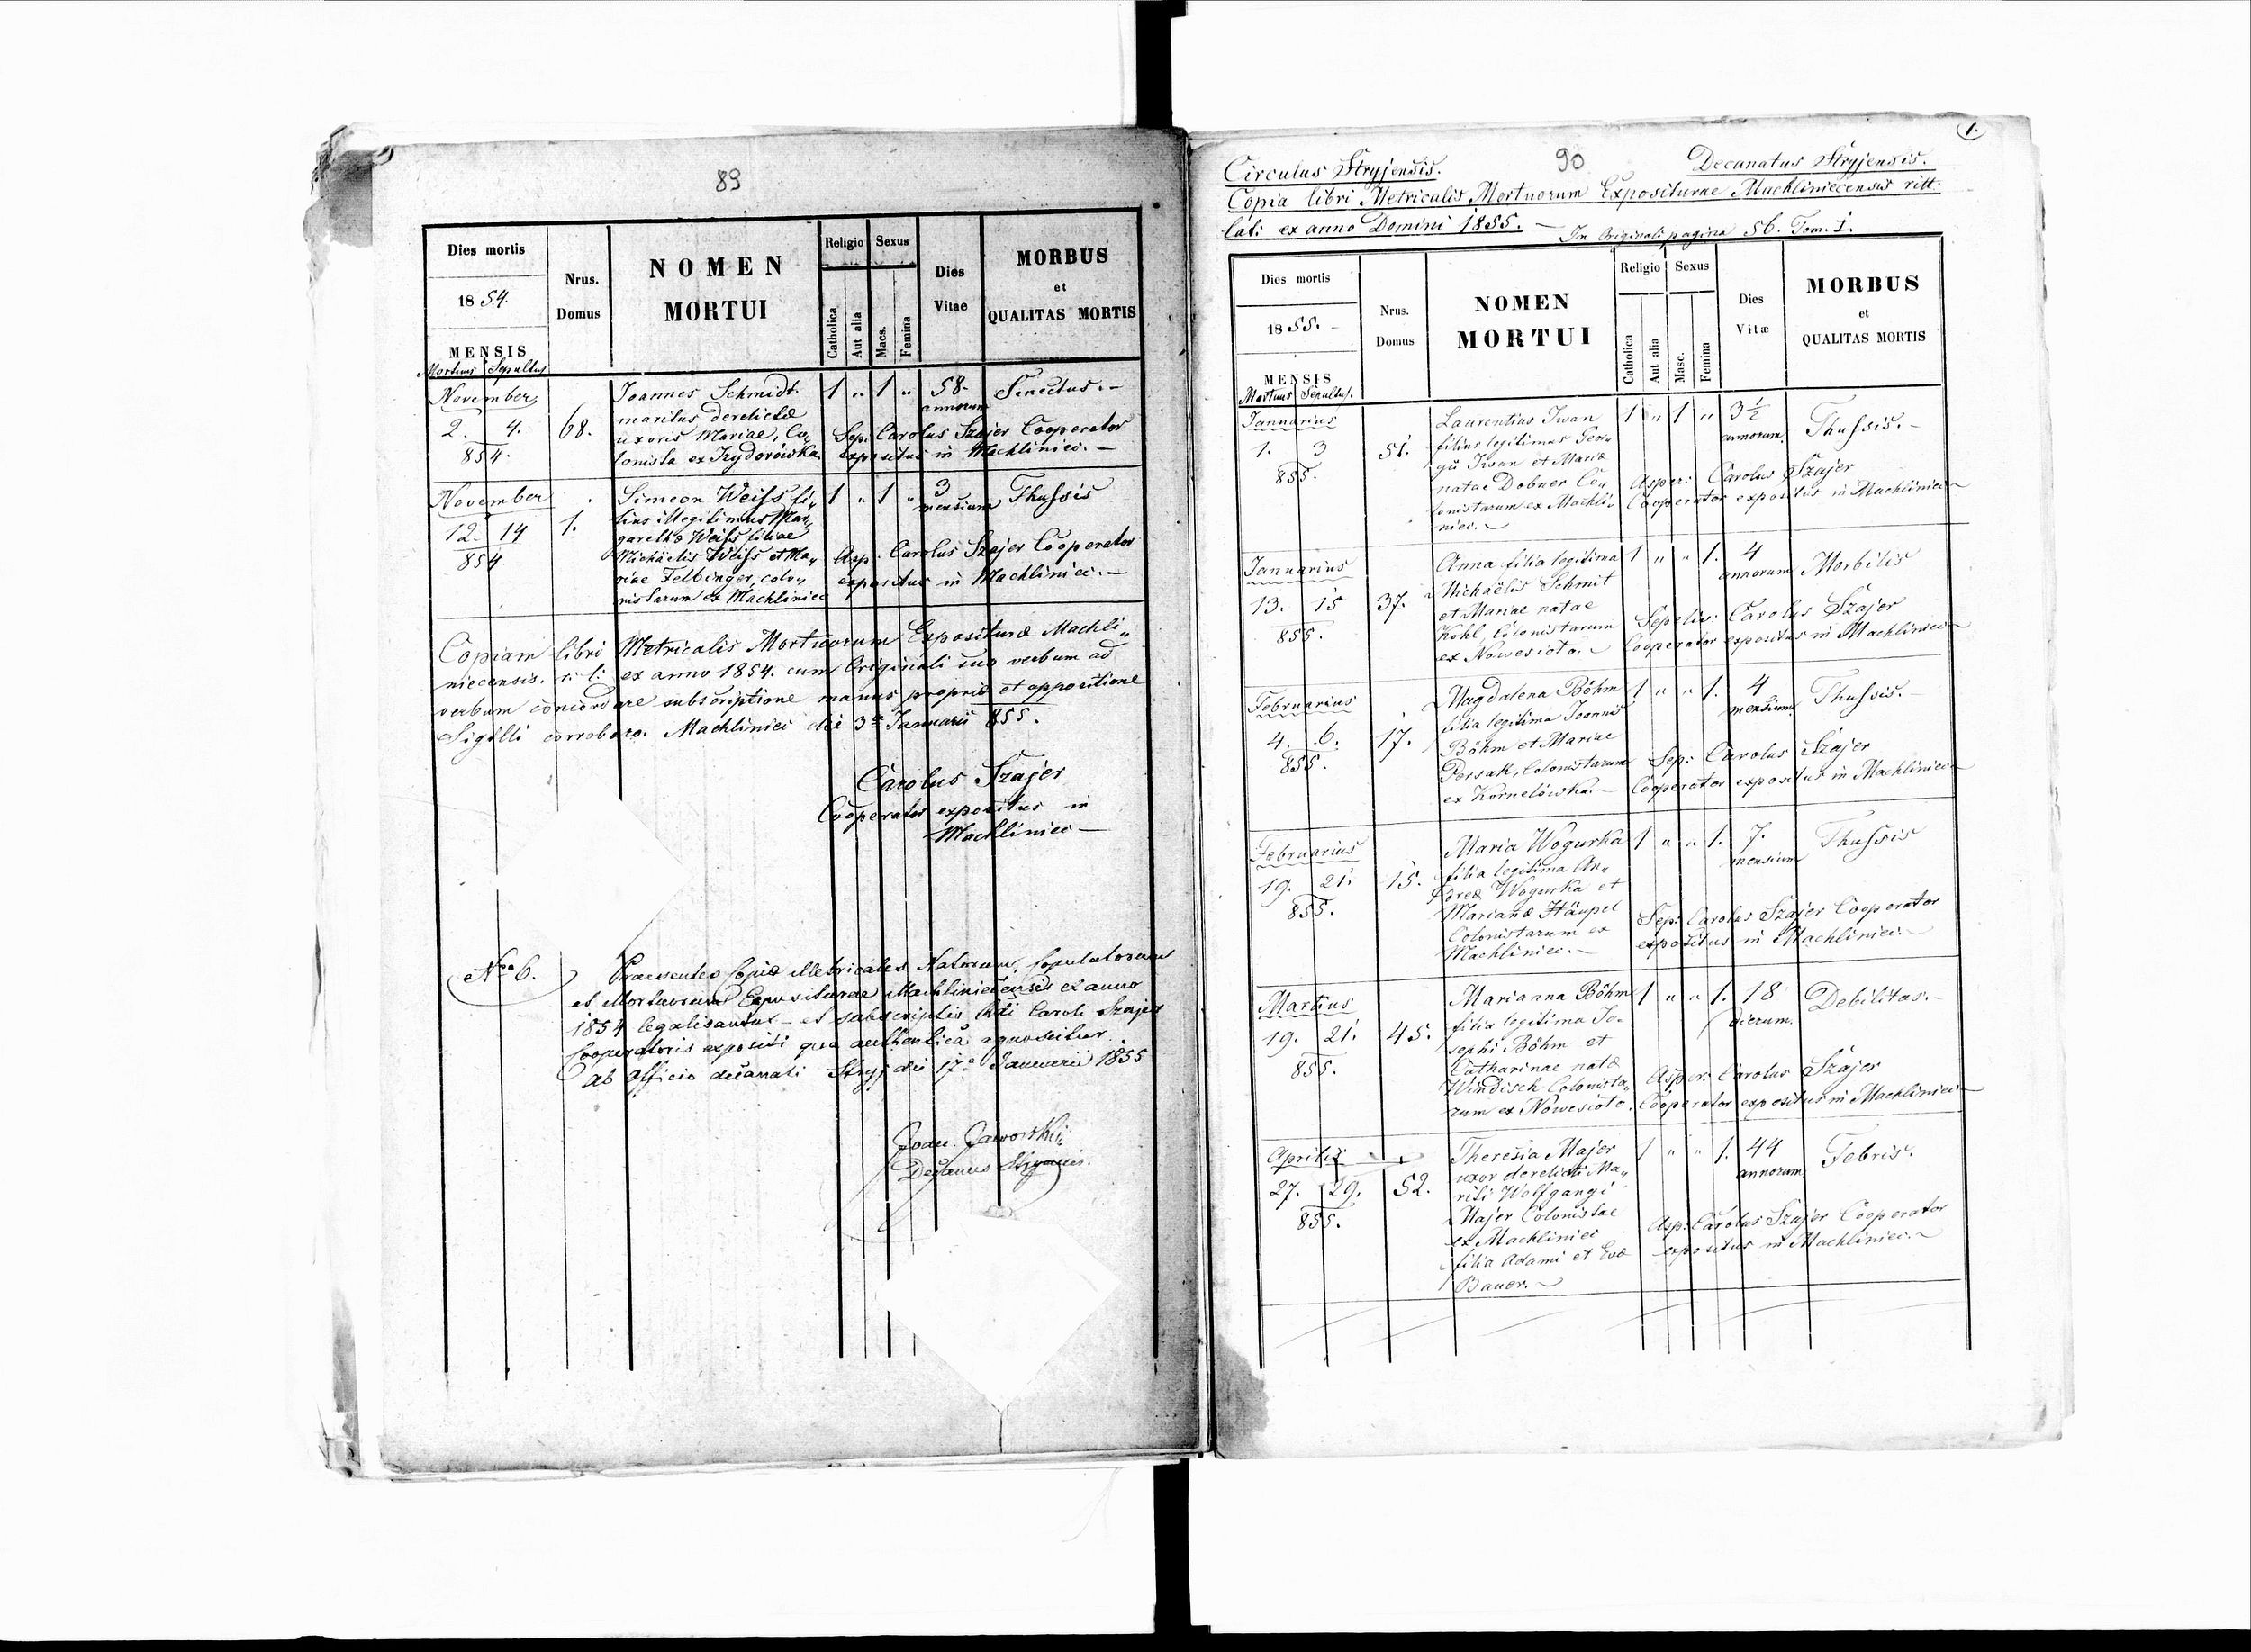 89
Dies mortis
1854.
MENSIS
Mortuus Sepultus
Nrus.
Domus
NOMEN
MORTUI
Religio
Catholica
Aut alia
Sexus
Masc.
Femina
Dies
Vitae
MORBUS
et
QUALITAS MORTIS
November
2. 4.
854.
68.
Joannes Schmidt
maritus derelictæ
uxoris Mariae, Co„
lonista ex Izydorówka.
1 „ 1 „
58.
annorum
Senectus. –
Sep: Carolus Szajer Cooperator
expositus in Machliniec. –
November
12. 14
854
1.
Simeon Weifs fi„
lius illegitimus Mar„
garethæ Weifs filiae
Michaelis Weifs et Ma„
riae Felbinger, colo„
nistarum ex Machliniec
1 „ 1 „
3
mensium
Thufsis
Asp: Carolus Szajer Cooperator
expositus in Machliniec. –
Copiam libri Metricalis Mortuorum Exposituræ Machli„
niecensis. r: l: ex anno 1854. cum Originali suo verbum ad
verbum concordare subscriptione manus propriæ et appositione
Sigilli corroboro. Machliniec die 3ª Januarii 855.
Carolus Szajer
Cooperator expositus in
Machliniec –
Nro 6.
Praesentes Copiæ Metricales Natorum, Copulatorum
et Mortuorum Expositurae Machliniecensis ex anno
1854 legalisantur – et subscriptio Rdi Caroli Szajer
Cooperatoris expositi qua authentica agnoscitur.
Ab Officio decanali Stryj die 17ª Januarii 1855
Jaworski
Decanus Stryensis.
1.
90
Circulus Stryjensis. Decanatus Stryjensis.
Copia libri Metricalis Mortuorum Expositurae Machliniecensis ritt:
lat: ex anno Domini 1855. – In Originali pagina 56. Tom. I.
Dies mortis
1855. –
MENSIS
Mortuus Sepultus.
Nrus.
Domus
NOMEN
MORTUI
Religio
Catholica
Aut alia
Sexus
Masc.
Femina
Dies
Vitæ
MORBUS
et
QUALITAS MORTIS
Januarius
1. 3
855.
51.
Laurentius Iwan
filius legitimus Geor„
gii Iwan et Mariæ
natae Dobner Co„
lonistarum ex Machli„
niec. –
1 „ 1 „
3 1/2
annorum.
Thufsis. –
Asper: Carolus Szajer
Cooperator expositus in Machliniec –
Januarius
13. 15
855.
37.
Anna filia legitima
Michaëlis Schmit
et Mariae natae
Kohl, Colonistarum
ex Nowesioto. –
1 „ „ 1.
4
annorum
Morbilis
Sepeliv: Carolus Szajer
Cooperator expositus in Machliniec –
Februarius
4. 6.
855.
17.
Magdalena Böhm
filia legitima Joannis
Böhm et Mariae
Persak, Colonistarum
ex Kornelówka. –
1 „ „ 1.
4
mensium.
Thufsis. –
Sep: Carolus Szajer
Cooperator expositus in Machliniec –
Februarius
19. 21.
855.
15.
Maria Wogurka
filia legitima An„
dreæ Wogurka et
Marianæ Häupel
Colonistarum ex
Machliniec. –
1 „ „ 1.
7.
mensium
Thufsis
Sep: Carolus Szajer Cooperator
expositus in Machliniec. –
Martius
19. 21.
855.
45.
Marianna Böhm
filia legitima Jo„
sephi Böhm et
Catharinae natæ
Windisch Colonista„
rum ex Nowesioto.
1 „ „ 1.
18
dierum.
Debilitas. –
Asper: Carolus Szajer
Cooperator expositus in Machliniec –
Aprilis
27. 29.
855.
52.
Theresia Majer
uxor derelicti Ma„
riti Wolfgangi
Majer Colonistae
ex Machliniec
filia Adami et Evæ
Bauer. –
1 „ „ 1.
44
annorum.
Febris.
Asp: Carolus Szajer Cooperator
expositus in Machliniec. –